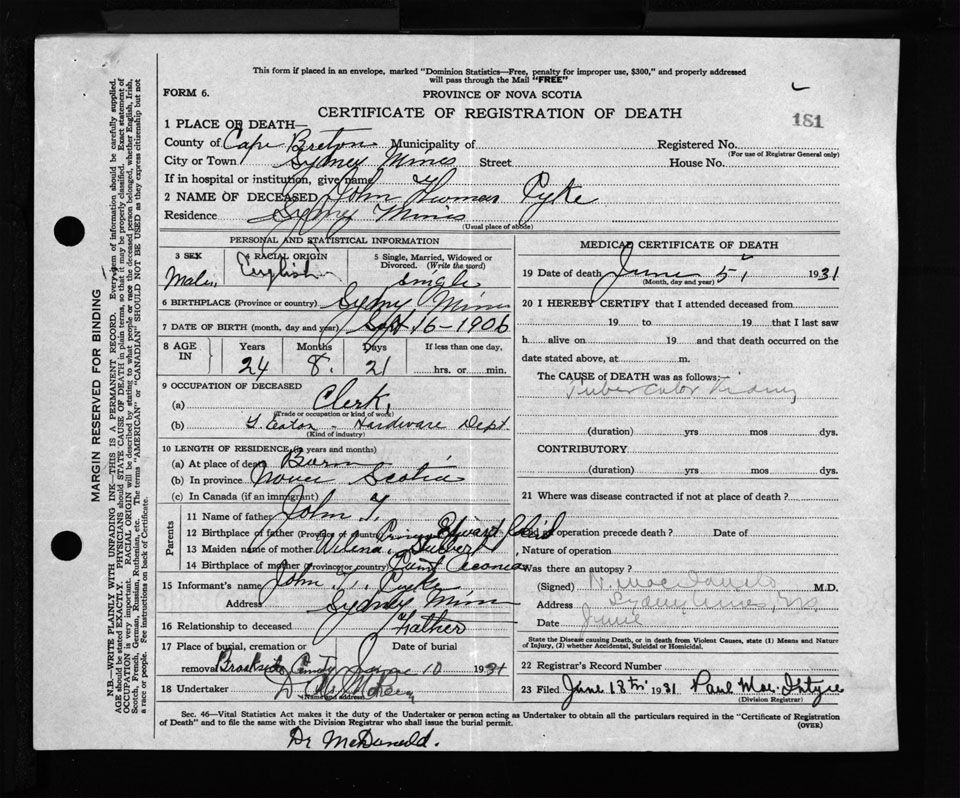 This form if placed in an envelope, marked "Dominion Statistics—Free, penalty for improper use, $300," and properly addressed
will pass through the Mail "FREE"
FORM 6.
PROVINCE OF NOVA SCOTIA
CERTIFICATE OF REGISTRATION OF DEATH
181
1 PLACE OF DEATH—
County of Cape Breton Municipality of Registered No.
(For use of Registrar General only)
City or Town Sydney Mines Street House No.
If in hospital or institution, give name
2 NAME OF DECEASED John Thomas Pyke
Residence Sydney Mines
(Usual place of abode)
PERSONAL AND STATISTICAL INFORMATION
3 SEX 4 RACIAL ORIGIN 5 Single, Married, Widowed or Divorced. (Write the word)
Male English Single
6 BIRTHPLACE (Province or country) Sydney Mines
7 DATE OF BIRTH (month, day and year) Sept 16-1906
8 AGE IN Years Months Days If less than one day,
24 8 21 hrs. or min.
9 OCCUPATION OF DECEASED
(a) Clerk,
(Trade or occupation or kind of work)
(b) T. Eaton - Hardware Dept.
(Kind of industry)
10 LENGTH OF RESIDENCE (in years and months)
(a) At place of death Born
(b) In province Nova Scotia
(c) In Canada (if an immigrant)
Parents
11 Name of father John T.
12 Birthplace of father (Province or country) Prince Edward Isld
13 Maiden name of mother
14 Birthplace of mother (Province or country) Point Aconia
15 Informant's name John T. Pyke
Address Sydney Mines
16 Relationship to deceased Father
17 Place of burial, cremation or removal Date of burial
Brookside June 10 1931
18 Undertaker
MEDICAL CERTIFICATE OF DEATH
19 Date of death June 5, 1931
(Month, day and year)
20 I HEREBY CERTIFY that I attended deceased from
19 to 19 that I last saw
h alive on 19 and that death occurred on the
date stated above, at m.
The CAUSE of DEATH was as follows:—
Tubercular Kidney
(duration) yrs mos dys.
CONTRIBUTORY
(duration) yrs mos dys.
21 Where was disease contracted if not at place of death?
Did operation precede death? Date of
Nature of operation
Was there an autopsy?
(Signed) M.D.
Address Sydney Mines, N.S.
Date June
State the Disease causing Death, or in death from Violent Causes, state (1) Means and Nature
of Injury, (2) whether Accidental, Suicidal or Homicidal.
22 Registrar's Record Number
23 Filed June 18th 1931 Paul MacIntyre
(Division Registrar)
Sec. 46—Vital Statistics Act makes it the duty of the Undertaker or person acting as Undertaker to obtain all the particulars required in the "Certificate of Registration
of Death" and to file the same with the Division Registrar who shall issue the burial permit.
(OVER)
Dr McDonald.
MARGIN RESERVED FOR BINDING
N.B.—WRITE PLAINLY WITH UNFADING INK—THIS IS A PERMANENT RECORD. Every item of information should be carefully supplied.
AGE should be stated EXACTLY. PHYSICIANS should STATE CAUSE OF DEATH in plain terms, so that it may be properly classified. Exact statement of
OCCUPATION is very important. RACIAL ORIGIN will be described by stating to what people or race the deceased person belonged, whether English, Irish,
Scotch, French, German, Russian, Ruthenian, etc. The terms "AMERICAN" or "CANADIAN" SHOULD NOT BE USED as they express citizenship but not
a race or people. See instructions on back of Certificate.